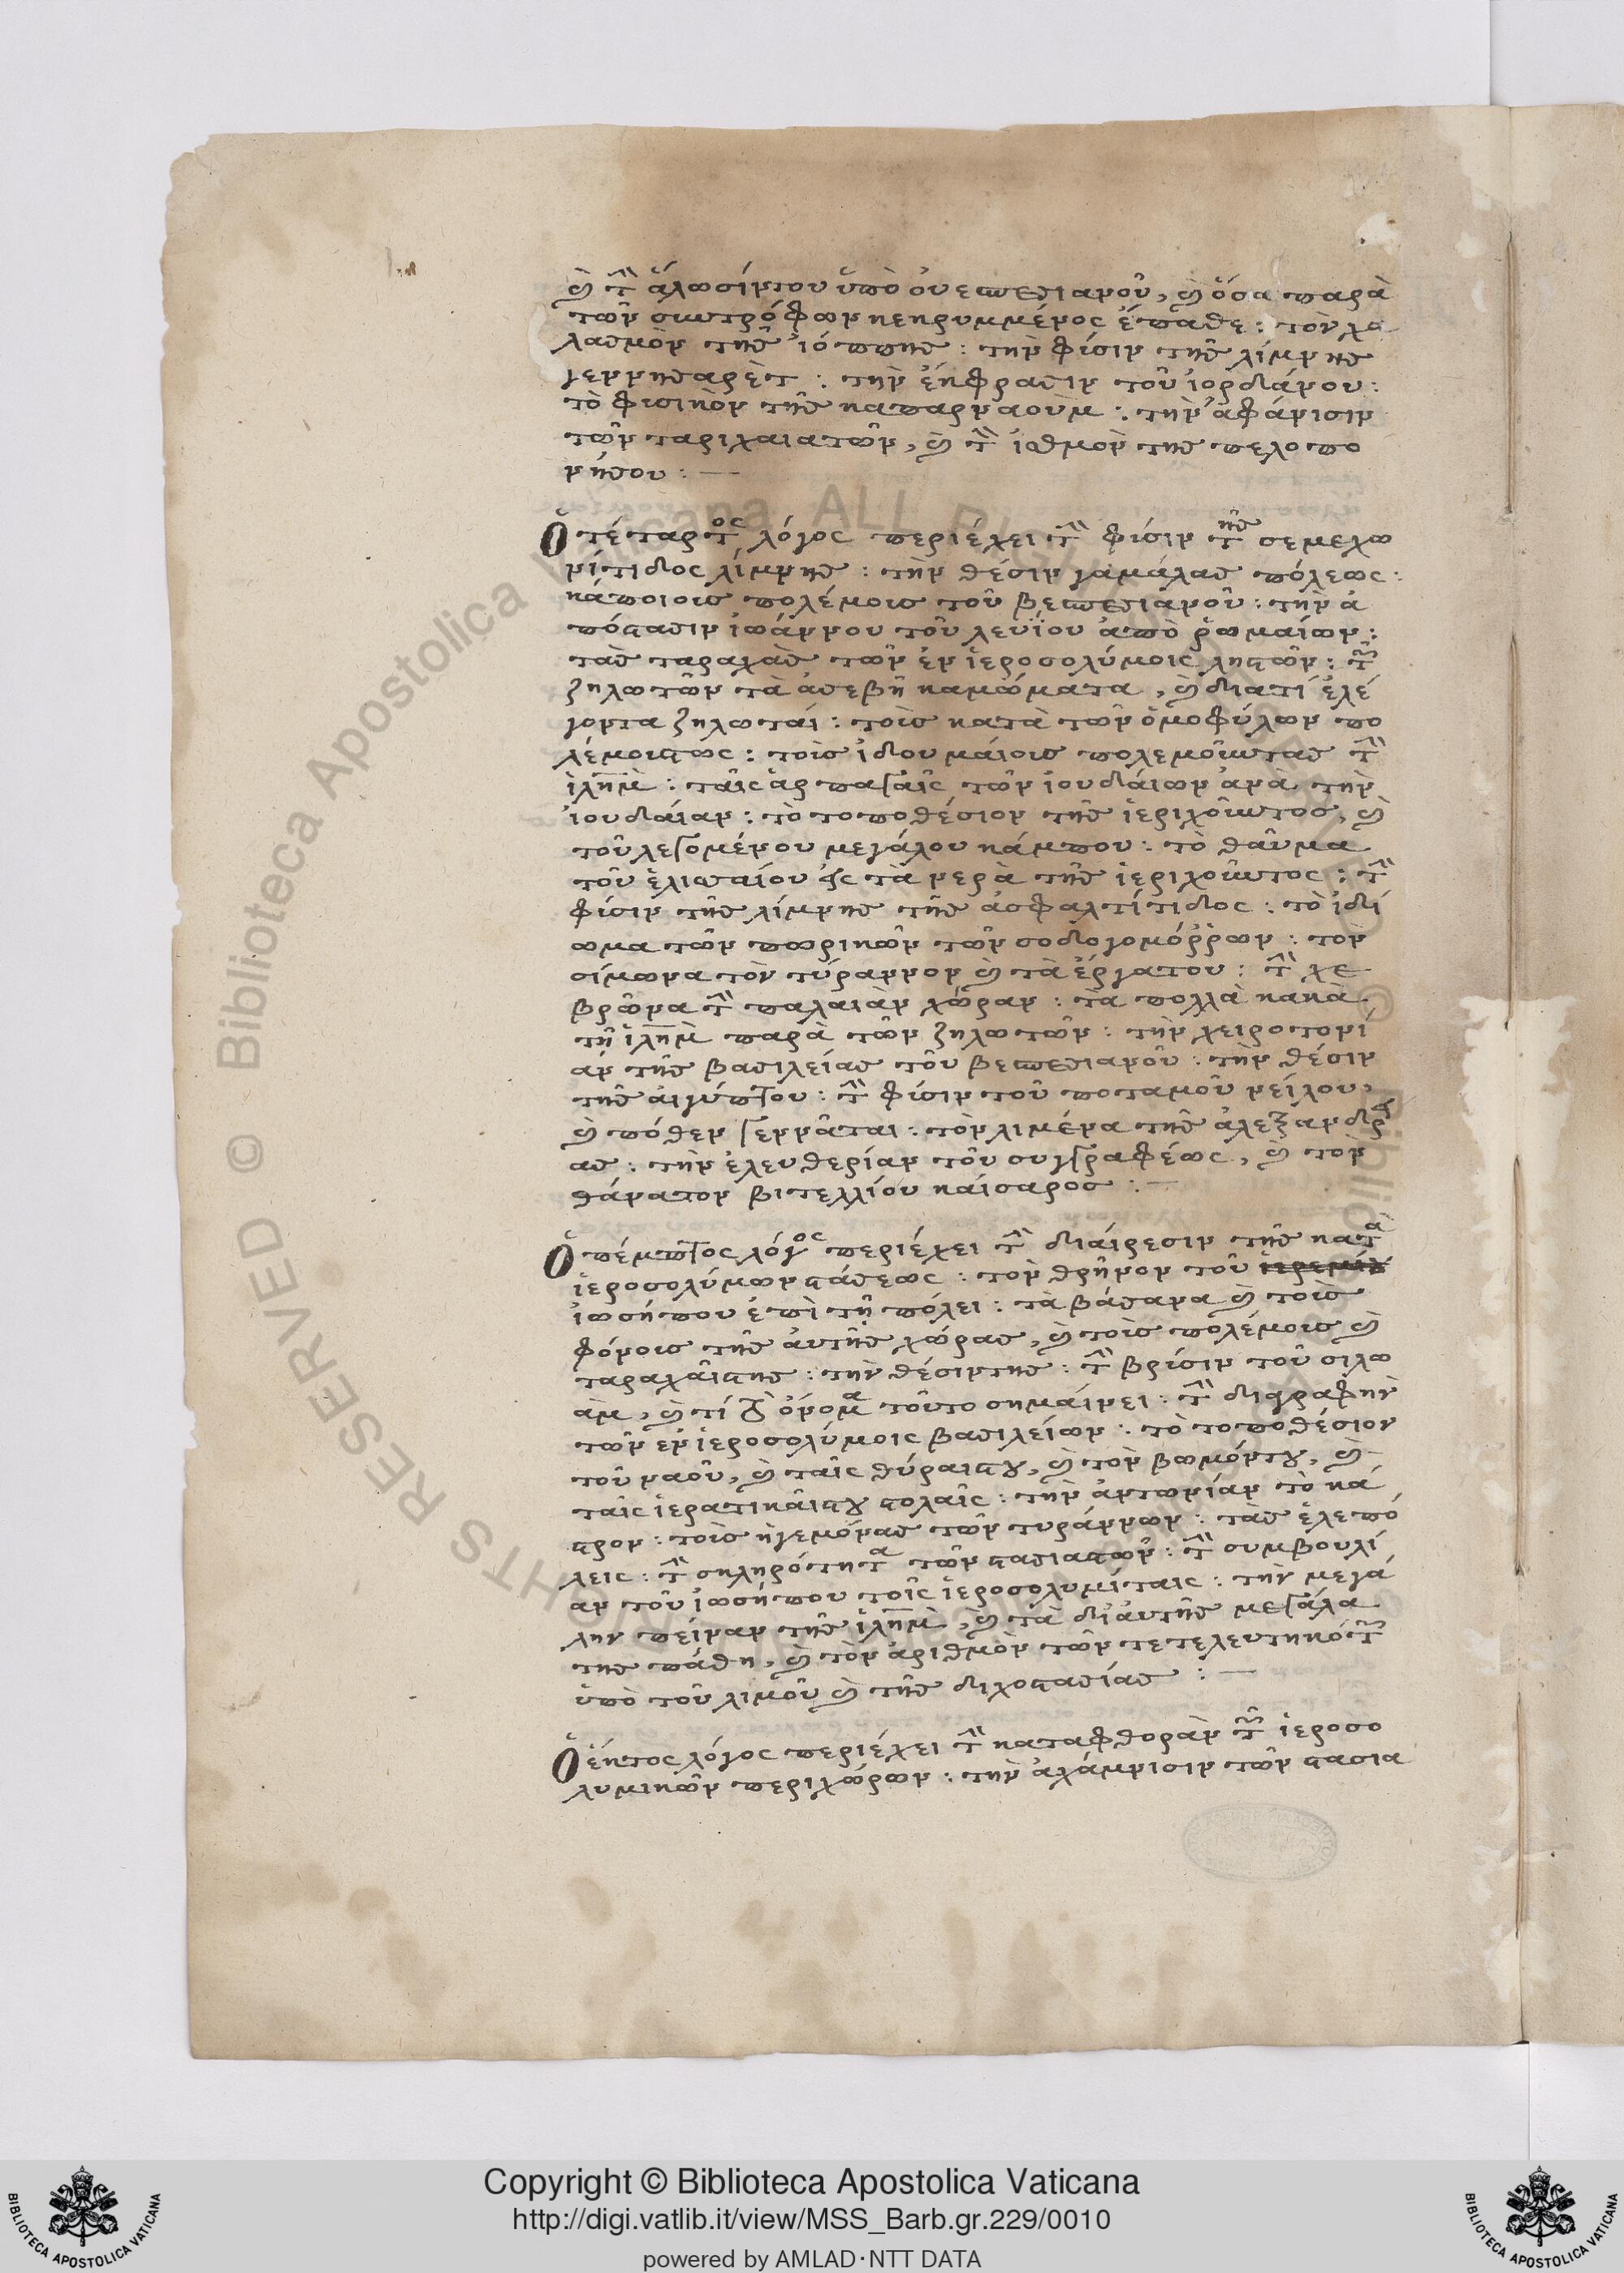 καὶ τὴν ἅλωσίν του ὑπὸ οὐεσπεσιανοῦ, καὶ ὅσα παρὰ
τῶν συντρόφων κεκρυμμένος ἔπαθε : τὸν χα
λασμὸν τῆς ἰόππης : τὴν φίσιν τῆς λίμνης
γεννησαρὲτ : τὴν ἔκφρασιν τοῦ ἰορδάνου :
τὸ φισικὸν τῆς καπαρναοὺμ : τὴν ἀφάνισιν
τῶν ταριχαιατῶν, καὶ τὴν ἰσθμὸν της πελοπο
νήσου : —
Ὁ τέταρτος λόγος περιέχει τὴν φίσιν τῆς σεμεχω
νίτιδος λίμνης : τὴν θέσιν γάμάλας πόλεως :
κάποιοις πολέμοις τοῦ βεσπεσιανοῦ : τὴν ἀ
πόστασιν ἰωάννου τοῦ λευΐου ἀπὸ ῥωμαίων :
τὰς ταραχὰς τῶν ἐν ἱεροσολύμοις ληστῶν : τῶν
ζηλωτῶν τὰ ἀσεβῆ καμώματα, καὶ διατί ἐλέ
γοντα ζηλωταί : τοὶς κατὰ τῶν ὁμοφύλων πο
λέμοις τως : τοὶς ἰδουμαίοις πολεμοῦντας τὴν
ἱλῆμ : ταῖς ἁρπαγαῖς τῶν ἰουδαίων ἀνὰ τὴν
ἰουδαίαν : τὸ τοποθέσιον τῆς ἱεριχοῦντος, καὶ
τοῦ λεγομένου μεγάλου κάμπου : τὸ θαῦμα
τοῦ ἐλισσαίου εἰς τὰ νερὰ τῆς ἱεριχοῦντος : τὴν
φίσιν τῆς λίμνης τῆς ἀσφαλτίτιδος : τὸ ἰδί
ωμα τῶν πωρικῶν τῶν σοδογομόῤῥων : τὸν
σίμωνα τὸν τύραννον καὶ τὰ ἔργα του : τὴν χε
βρῶνα τὴν παλαιὰν χώραν : τὰ πολλὰ κακὰ
τῆ ἱλῆμ παρὰ τῶν ζηλωτῶν : τὴν χειροτονί
αν τῆς βασιλείας τοῦ βεσπεσιανοῦ : τὴν θέσιν
τῆς αἰγύπτου : τὴν φίσιν τοῦ ποταμοῦ νείλου,
καὶ πόθεν γεννᾶται : τὸν λιμένα τῆς ἀλεξανδρεί
ας : τὴν ἐλευθερίαν τοῦ συγγραφέως, καὶ τὸν
θάνατον βιτελλίου καίσαρος : —
Ὁ πέμπτος λόγος περιέχει τὴν διαίρεσιν τῆς κατὰ
ἱεροσολύμων στάσεως : τὸν θρῆνον τοῦ
ἰωσήπου ἐπὶ τῆ πόλει : τὰ βάσανα καὶ τοὶς
φόνοις τῆς ἀυτῆς χώρας, καὶ τοὶς πολέμοις καὶ
ταραχαῖς της : τὴν θέσιν της : τὴν βρίσιν τοῦ σιλω
ὰμ, καὶ τί τὸ ὄνομα τοῦτο σημαίνει : τὴν διαγραφὴν
τῶν ἐν ἱεροσολύμοις βασιλείων : τὸ τοποθέσιον
τοῦ ναοῦ, καὶ ταῖς θύραις του, καὶ τὸν βωμόν του, καὶ
ταὶς ἱερατικαῖς του στολαῖς : τὴν ἀντωνίαν τὸ κά
στρον : τοὶς ἡγεμόνας τῶν τυράννων : τὰς ἑλεπό
λεις : τὴν σκληρότητα τῶν στασιαστῶν : τὴν συμβουλί
αν τοῦ ἰωσήπου τοῖς ἱεροσολυμίταις : τὴν μεγά
λην πείναν τῆς ἱλῆμ, καὶ τὰ δι' ἀυτῆς μεγάλα
της πάθη, καὶ τὸν ἀριθμὸν τῶν τετελευτηκότων
ὑπὸ τοῦ λιμοῦ καὶ τῆς διχοστασίας : —
Ὁ ἕκτος λόγος περιέχει τὴν καταφθορὰν τῶν ἱεροσο
λυμικῶν περιχώρων : τὴν ἀχάμνισιν τῶν στασια
Copyright © Biblioteca Apostolica Vaticana
http://digi.vatlib.it/view/MSS_Barb.gr.229/0010
powered by AMLAD·NTT DATA